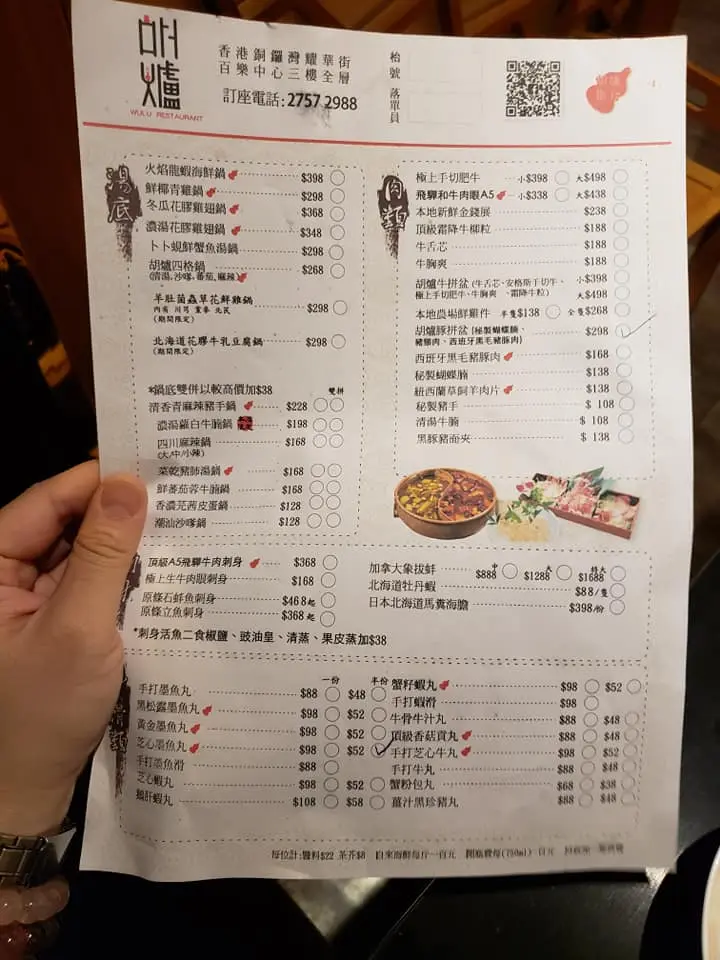 胡爐
WULU RESTAURANT
香港銅鑼灣耀華街
百樂中心三樓全層
訂座電話:2757 2988
枱號
落單員
湯底
火焰龍蝦海鮮鍋 $398
鮮椰青雞鍋 $298
冬瓜花膠雞翅鍋 $368
濃湯花膠雞翅鍋 $348
卜卜蜆鮮蟹魚湯鍋 $298
胡爐四格鍋 $268
(清湯,沙嗲,蕃茄,麻辣)
羊肚菌蟲草花鮮雞鍋 $298
(期間限定)
北海道花膠牛乳豆腐鍋 $298
(期間限定)
*鍋底雙併以較高價加$38 雙拼
清香青麻辣豬手鍋 $228
濃湯蘿白牛腩鍋 $198
四川麻辣鍋 $168
(大/中/小辣)
菜乾豬肺湯鍋 $168
鮮蕃茄蓉牛腩鍋 $168
香濃芫茜皮蛋鍋 $128
潮汕沙嗲鍋 $128
肉類
極上手切肥牛 小$398 大$498
飛驒和牛肉眼A5 小$338 大$438
本地新鮮金錢展 $238
頂級霜降牛柳粒 $188
牛舌芯 $188
牛胸爽 $188
胡爐牛拼盆 (牛舌芯、安格斯手切牛、 小$398
極上手切肥牛、牛胸爽、霜降牛粒) 大$498
本地農場鮮雞件 半隻$138 全隻$268
胡爐豚拼盆 (秘製蝴蝶腩、 $298
豬頸肉、西班牙黑毛豬豚肉)
西班牙黑毛豬豚肉 $168
秘製蝴蝶腩 $138
紐西蘭草飼羊肉片 $138
秘製豬手 $ 108
清湯牛腩 $ 108
黑豚豬面夾 $ 138
頂級A5飛驒牛肉刺身 $368
極上生牛肉眼刺身 $168
原條石蚌魚刺身 $468起
原條立魚刺身 $368起
*刺身活魚二食椒鹽、豉油皇、清蒸、果皮蒸加$38
加拿大象拔蚌 中$888 大$1288 特大$1688
北海道牡丹蝦 $88/隻
日本北海道馬糞海膽 $398/份
滑類
一份 半份
手打墨魚丸 $88 $48
黑松露墨魚丸 $98 $52
黃金墨魚丸 $98 $52
芝心墨魚丸 $98 $52
手打墨魚滑 $88
芝心蝦丸 $98 $52
鵝肝蝦丸 $108 $58
蟹籽蝦丸 $98 $52
手打蝦滑 $98
牛骨牛汁丸 $88 $48
頂級香菇貢丸 $88 $48
手打芝心牛丸 $98 $52
手打牛丸 $88 $48
蟹粉包丸 $68 $38
薑汁黑珍豬丸 $88 $48
每位計:醬料$22 茶芥$8 自來海鮮每斤一百元 開瓶費每(750ml) 一百元